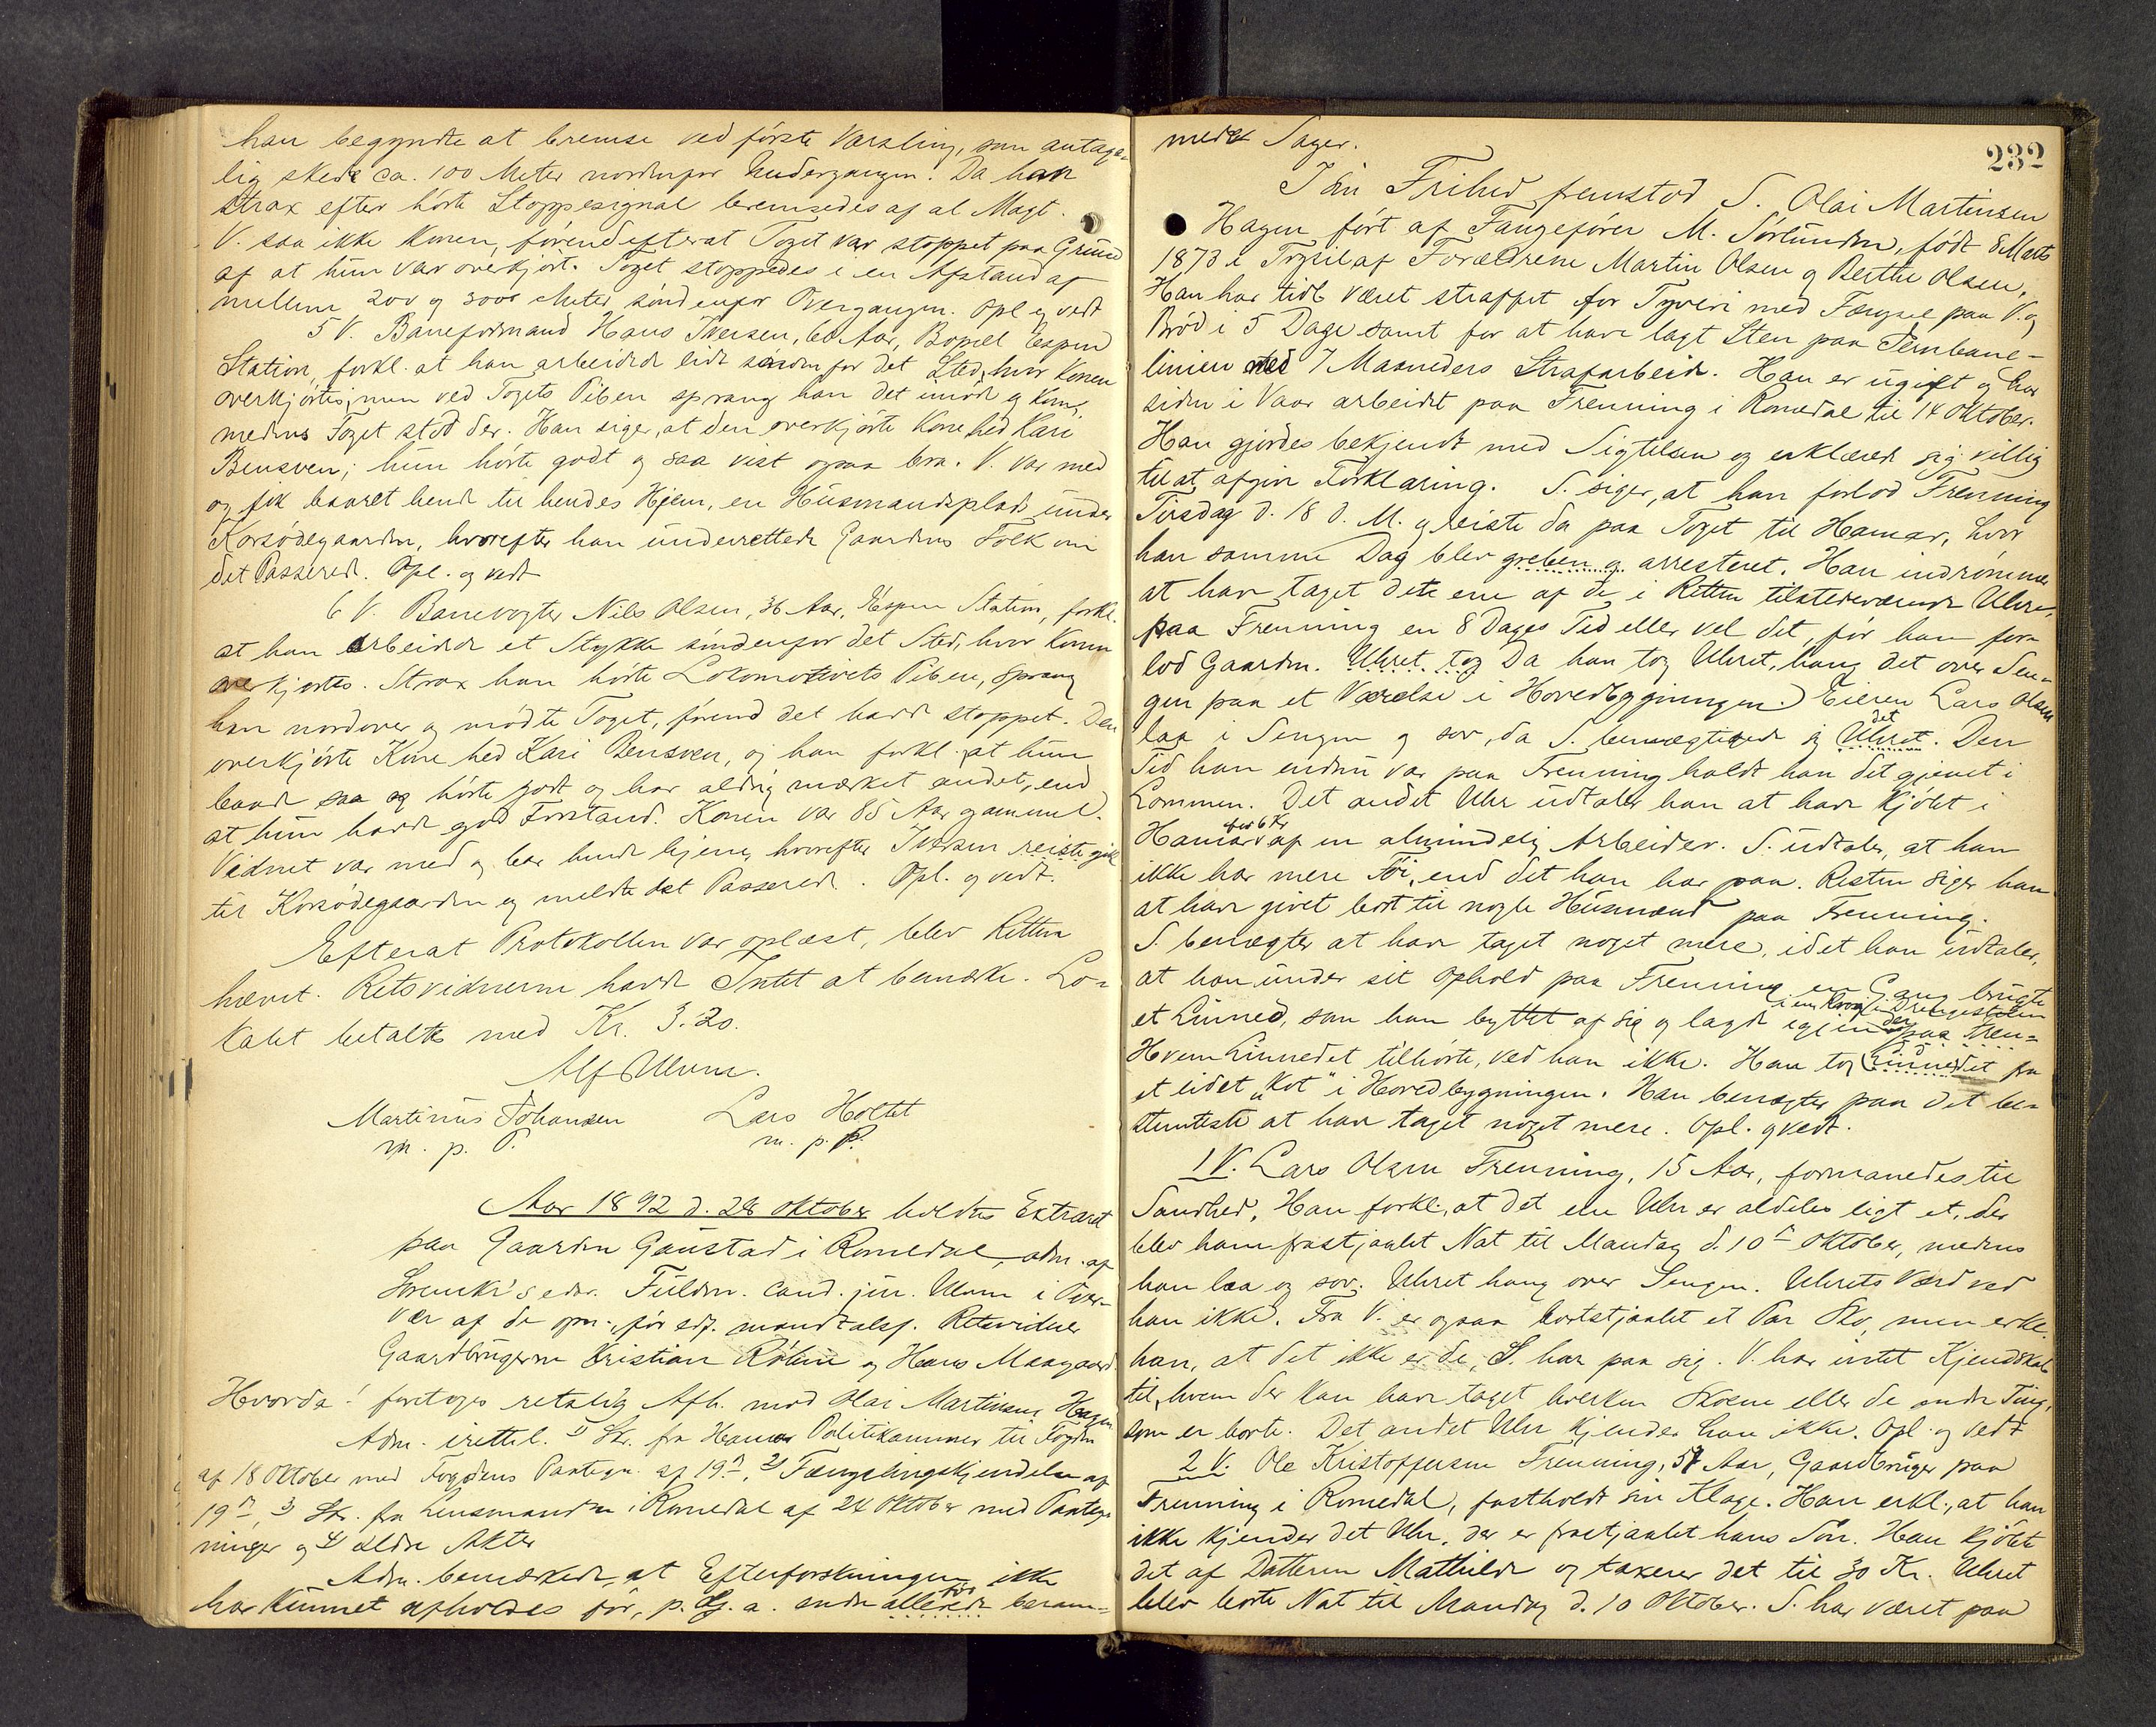 han begyndte at bremse ved første Varsling, som antage-
lig skede ca. 100 Meter nordenfor Undergangen. Da han
strax efter hørte Stoppesignal bremsedes af al Magt.
V. saa ikke Konen, førend efterat Toget var stoppet paa Grund
af at hun var overkjørt. Toget stoppedes i en Afstand af
mellem 200 og 300 Meter søndenfor Overgangen. Opl. og vedt
5 V. Baneformand Hans Iversen, 60 Aar, Bopæl Espen
Station, forkl. at han arbeidede lidt søndenfor det Sted, hvor Konen
overkjørtes, men ved Togets Piben sprang han det imøde og kom,
medens Toget stod der. Han siger, at den overkjørte Kone hed Kari
Bensven; hun hørte godt og saa vist ogsaa bra. V. var med
og fik baaret hende til hendes Hjem, en Husmandsplads under
Korsødegaarden, hvorefter han underrettede Gaardens Folk om
det Passerede. Opl. og vedt
6 V. Banevogter Nils Olsen, 36 Aar, Espen Station, forkl.
at han arbeidede et Stykke søndenfor det Sted, hvor Konen
overkjørtes. Strax han hørte Lokomotivets Piben, sprang
han nordover og mødte Toget, førend det havde stoppet. Den
overkjørte Kone hed Kari Bensven, og han forkl. at hun
baade saa og hørte godt og har aldrig mærket andet, end
at hun havde god Forstand. Konen var 85 Aar gammel.
Vidnet var med og bar hende hjem, hvorefter Iversen reiste gik
til Korsødegaarden og meldte det Passerede. Opl. og vedt.
Efterat Protokollen var oplæst, blev Retten
hævet. Retsvidnerne havde Intet at bemærke. Lo-
kalet betaltes med Kr. 3.20.
Alf Ulven.
Martinus Johansen Lars Holtet
m. p. P. m. p. P.
Aar 1892 d. 28 Oktober holdtes Extraret
paa Gaarden Gaustad i Romedal, adm. af
Sorenskr's edsv. Fuldm. cand. jur. Ulven i Over-
vær af de opn., før edf. mandtalsf. Retsvidner
Gaardbrugerne Kristian Røhne og Hans Maagaard
Hvorda! foretoges retslig Afh. mod Olai Martinsen Hagen
Adm. irettel. 1) Skr. fra Hamar Politikammer til Fogden
af 18 Oktober med Fogdens Paategn. af 19 n, 2) Fængslingskjendelse af
19 n, 3) Skr. fra Lensmanden i Romedal af 24 Oktober med Paateg-
ninger og 4) ældre Akter
Adm. bemærkede, at Efterforskningen ikke
har kunnet afholdes før, p. Gr. a. andre allerede før beram-
232
mede Sager.
I sin Frihed fremstod S. Olai Martinsen
Hagen ført af Fangefører M. Sørlunden, født 8 Marts
1873 i Trysil af Forældrene Martin Olsen og Berthe Olsen.
Han har tidl været straffet for Tyveri med Fængsel paa V. og
Brød i 5 Dage samt for at have lagt Sten paa Jernbane-
linien med 7 Maaneders Strafarbeide. Han er ugift og har
siden i Vaar arbeidet paa Frenning i Romedal til 14 Oktober.
Han gjordes bekjendt med Sigtelsen og erklærede sig villig
til at afgive Forklaring. S. siger, at han forlod Frenning
Tirsdag d. 18 d. M. og reiste da paa Toget til Hamar, hvor
han samme Dag blev greben og arresteret. Han indrømmer
at have taget dete ene af de i Retten tilstedeværende Uhre,
paa Frenning en 8 Dages Tid eller vel det, før han for-
lod Gaarden. Uhret tog Da han tog Uhret, hang det over Sen-
gen paa et Værelse i Hovedbygningen. Eieren Lars Olsen
laa i Sengen og sov, da S. bemægtigede sig det Uhret. Den
Tid han endnu var paa Frenning holdt han det gjemt i
Lommen. Det andet Uhr udtaler han at have kjøbt i
Hamar for 6 Kr af en almindelig Arbeider. S. udtaler, at han
ikke har mere Tøi, end det han har paa. Resten siger han
at have givet bort til nogle Husmænd paa Frenning.
S. benægter at have taget noget mere, idet han udtaler,
at han under sit Ophold paa Frenning en Gang brugte
et Linned, som han byttet af sig og lagde igjen i en Krog i Drengestuen paa Fren-
Hvem Linnedet tilhørte, ved han ikke. Han tog Linnedet fra
et lidet "Kot" i Hovedbygningen. Han benægter paa det be-
stemteste at have taget noget mere. Opl. og vedt.
1 V. Lars Olsen Frenning, 15 Aar, formanedes til
Sandhed. Han forkl., at det ene Uhr er aldeles ligt et, der
blev ham frastjaalet Nat til Mandag d. 10 de Oktober, medens
han laa og sov. Uhret hang over Sengen. Uhrets Værd ved
han ikke. Fra V. er ogsaa bortstjaalet et Par Sko, men erkl.
han, at det ikke er de, S. har paa sig. V. har intet Kjendskab
til, hvem der kan have taget hverken Skoene eller de andre Ting,
som er borte. Det andet Uhr kjender han ikke. Opl. og vedt
2 V. Ole Kristoffersen Frenning, 57 Aar, Gaardbruger paa
Frenning i Romedal, fastholdt sin Klage. Han erkl., at han
ikke kjender det Uhr, der er frastjaalet hans Søn. Han kjøbte
det af Datteren Mathilde og taxerer det til 30 Kr. Uhret
blev borte Nat til Mandag d. 10 Oktober. S. har været paa